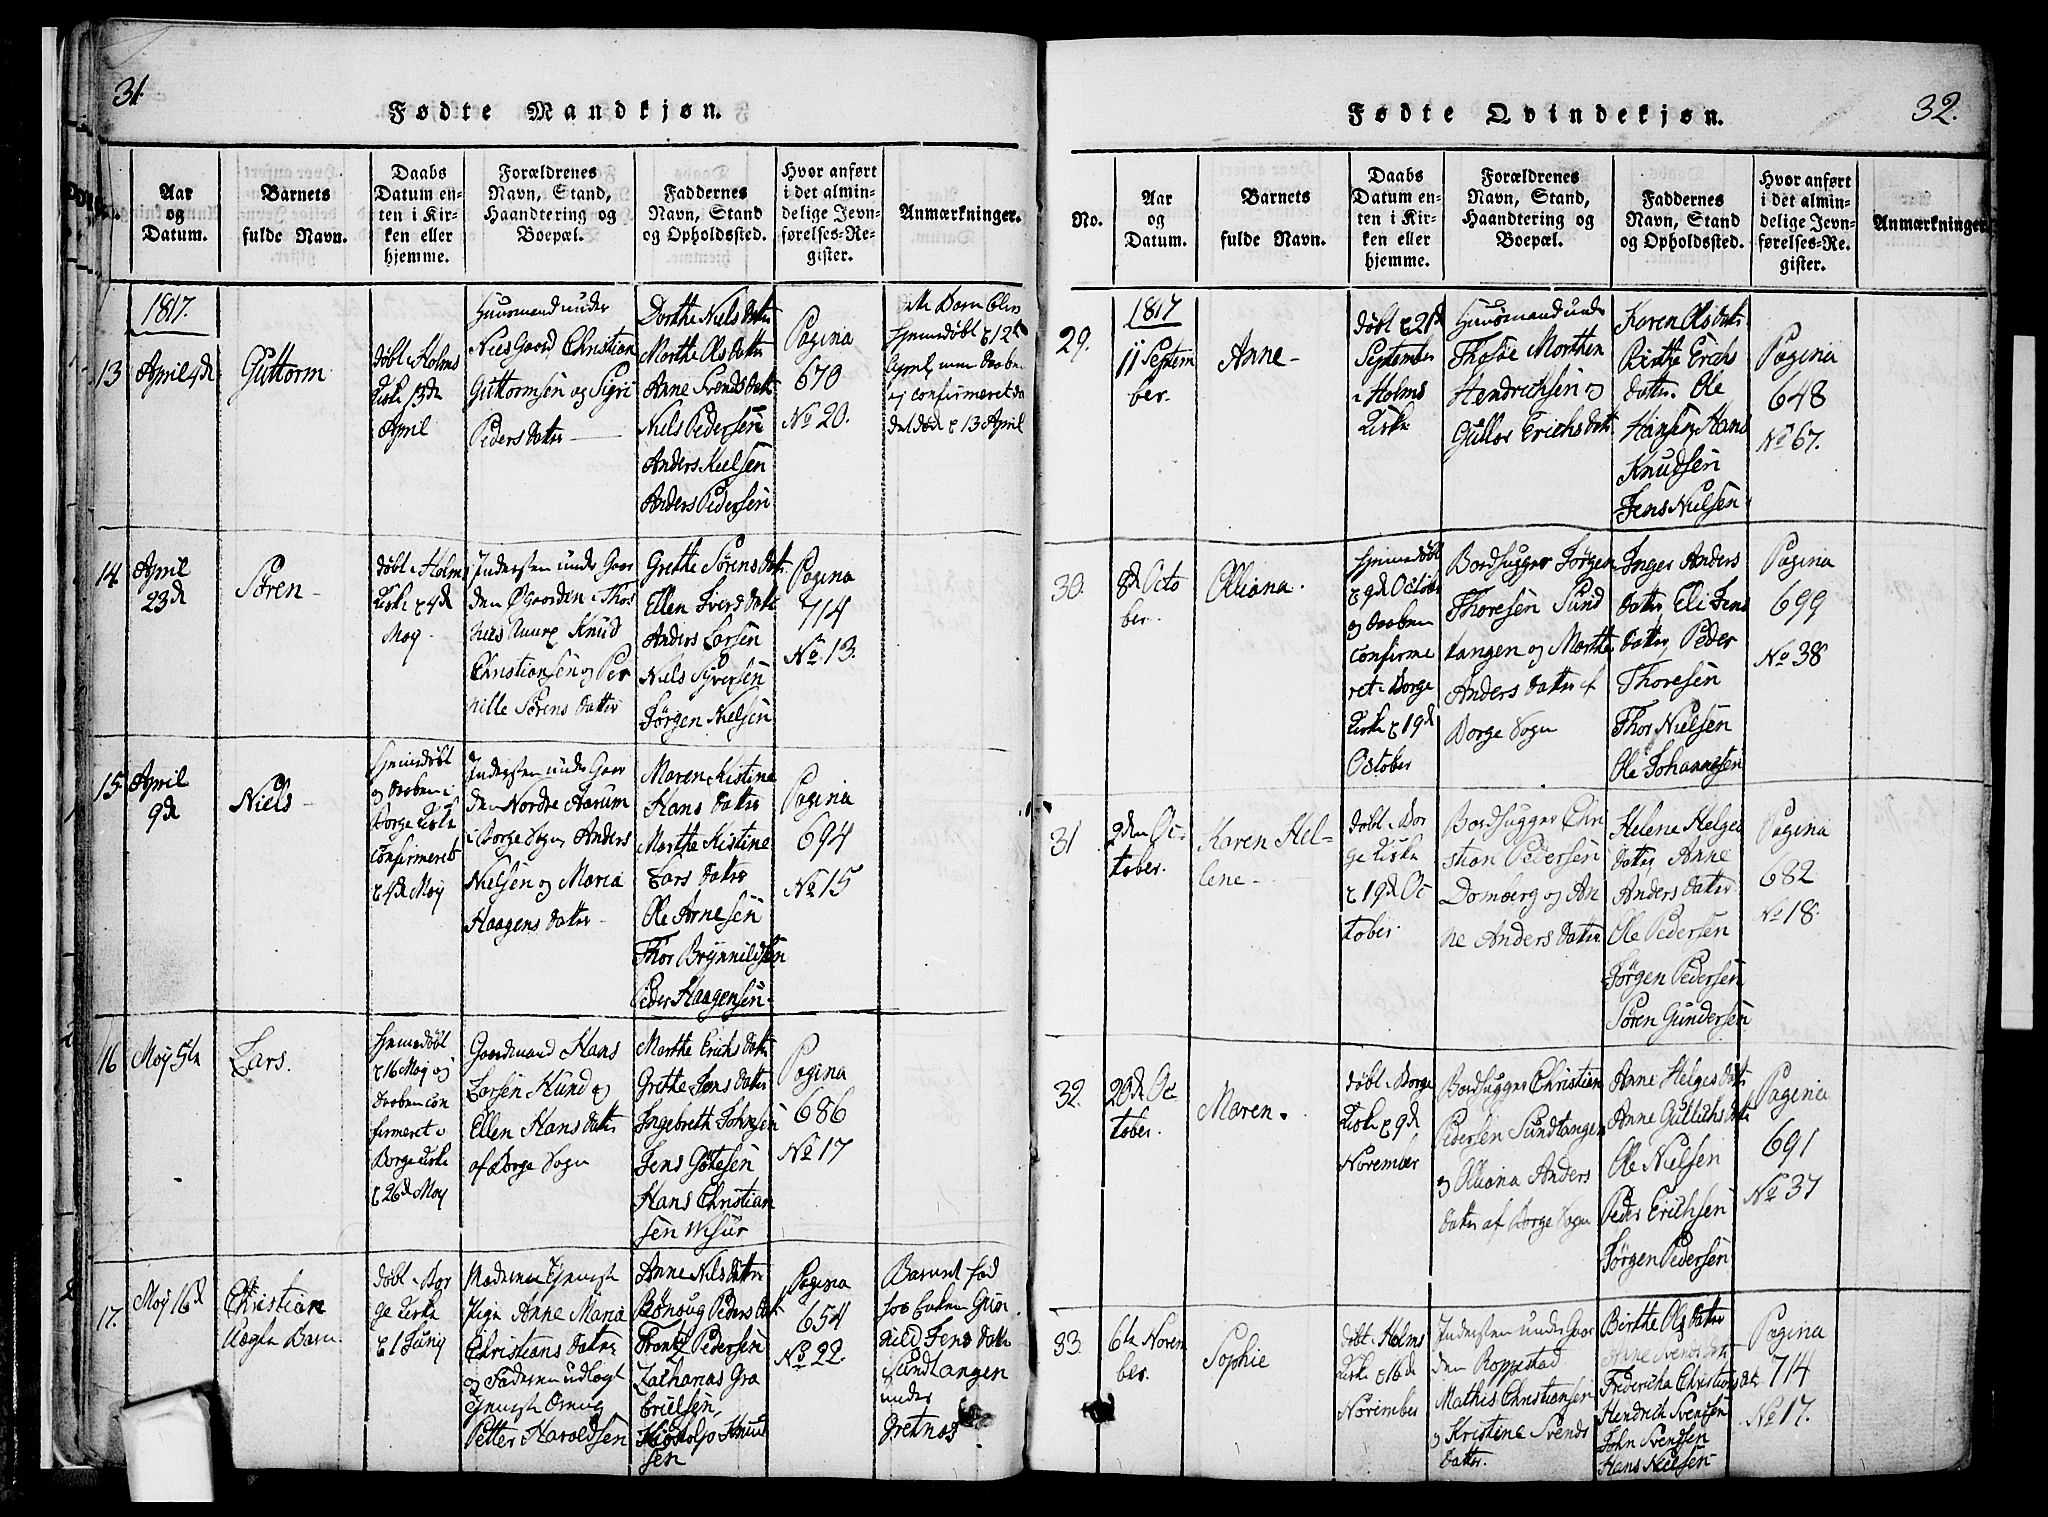 31.
Fødte Mandkjøn.
No.
Aar
og
Datum.
Barnets
fulde Navn.
Daabs
Datum en-
ten i Kir-
ken eller
hjemme.
Forældrenes
Navn, Stand,
Haandtering og
Boepæl.
Faddernes
Navn, Stand
og Opholdssted.
Hvor anført
i det almin-
delige Jevn-
førelses-Re-
gister.
Anmærkninger.
1817.
13
April 4d
Guttorm
døbt i Holms
Kirke 13de
April
Huusmand under
Nies Gaard Christian
Guttormsen og Sigri
Peders datter
Dorthe Niels datter
Marthe Ols datter
Anne Svends datter
Niels Pedersen
Anders Nielsen
Anders Pedersen
Pagina
670
No 20.
Barn blev
hjemmedøbt 12te
April, men Daaben
ej confirmeret da
det døde 13 April
14
April
23d
Søren
døbt i Holms
Kirke 4d
May
Indersten under Gaar
den Øgaarden i Thos
Knud
Christiansen og Per
nille Sørens datter
Grethe Sørens datter
Ellen Ivers datter
Anders Larsen
Niels Syversen
Jørgen Nielsen
Pagina
714
No. 13.
15
April
9d
Niels
Hjemmedøbt
og Daaben i
Borge Kirke
confirmeret
4d May
Indersten under Gaar
den Nordre Aarum
i Borge Sogn Anders
Nielsen og Maria
Haagens datter
Maren Kistine
Hans datter
Marthe Kistine
Lars datter
Ole Arnesen
Thor Brynnildsen
Peder Haagensen
Pagina
694
No 15
16
May 5te
Lars.
Hjemmedøbt
16 May og
Daaben con
firmeret i
Borge Kirke
26d May
Gaardmand Hans
Larsen Hund og
Ellen Hans datter
af Borge Sogn
Marthe Erichs datter
Grethe Jens datter
Ingebreth Johnsen
Jens Gøtesen
Hans Christian
sen Visur
Pagina
686
No 17
17.
May 16d
Christian
Uægte Barn
døbt i Bor
ge Kirke
1 Juny
Moderen
Pige Anne Maria
Christians datter
og Faderen udlagt
Petter Haroldsen
Anne Nils datter
Rønnug Peders datter
Frantz Pedersen
Zacharias Ga
brielsen,
Kistolfo Knud
sen
Pagina
654
No 22.
Barnet fød
hos Enken Gun
hild Jens datter
Sundtangen
under
Gretnes
32.
Fødte Qvindekjøn.
No.
Aar
og
Datum.
Barnets
fulde Navn.
Daabs
Datum en-
ten i Kir-
ken eller
hjemme.
Forældrenes
Navn, Stand,
Haandtering og
Boepæl.
Faddernes
Navn, Stand
og Opholdssted.
Hvor anført
i det almin-
delige Jevn-
førelses-Re-
gister.
Anmærkninger
1817
29.
11 Septem
ber.
Anne
døbt 21d
September
i Holms
Kirke
Huusmand under
Thosøe Morthen
Hendrichsen og
Gullor Erichs datter
Karen Ols datter
Birthe Erichs
datter. Ole
Hansen, Hans
Knudsen
Jens Nielsen
Pagina
648
No 67.
30.
8d Octo
ber.
Olliana.
Hjemmedøbt
9d October
og Daaben
confirme
ret i Borge
Kirke 19d
October
Bordhugger Jørgen
Thoresen Sund
tangen og Marthe
Anders datter af
Borge Sogn
Inger Anders
datter, Eli Jens
datter, Peder
Thoresen
Thor Nielsen
Ole Johannesen
Pagina
699
No 38
31
2den Oc-
tober.
Karen Hel-
lene
døbt i Bor
ge Kirke
19d Oc
tober.
Bordhugger Chri
stian Pedersen
Domberg og An
ne Anders datter
Helene Helges
datter, Anne
Anders datter
Ole Pedersen
Jørgen Pedersen
Søren Gundersen
Pagina
682
No 18.
32.
20d Oc
tober.
Maren.
døbt i Borge
Kirke 9d
November
Bordhugger Christian
Pedersen Sundtangen
og Olliana Anders
datter af Borge Sogn
Anne Helges datter
Anne Gullichs datter
Ole Nielsen
Peder Erichsen
Jørgen Pedersen
Pagina
691
No 37
33.
6te Novem
ber.
Sophie
døbt i Holms
Kirke 16d
November
Indersten under Gaar
den Roppestad
Mathis Christiansen
og Kristine Svends
datter.
Birthe Ols datter
Anne Svends datter
Fredericha Christians dt
Hendrich Svendsen
John Svendsen
Hans Nielsen
Pagina
714
No 17.